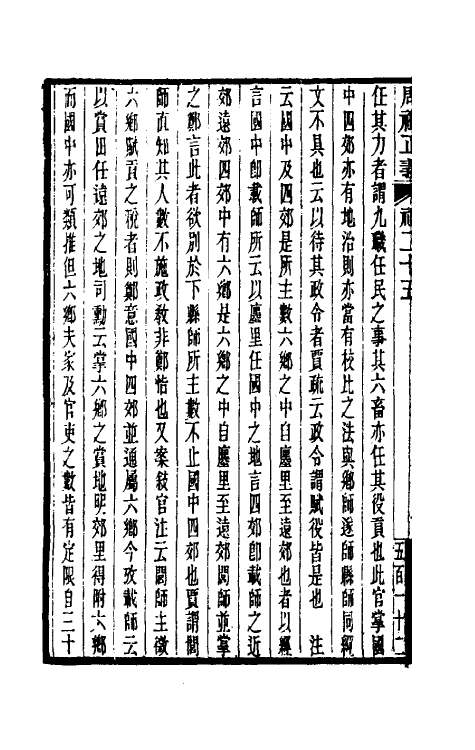 周禮正義 禮二十五 五百一十二
任其力者謂九職任民之事其六畜亦任其役貢也此官掌國
中四郊亦有地治則亦當有校比之法與鄉師遂師縣師同經
文不具也云以待其政令者賈疏云政令謂賦役皆是也 注
云國中及四郊是所主數六鄉之中自廛里至遠郊也者以經
言國中卽載師所云以廛里任國中之地言四郊卽載師之近
郊遠郊四郊中有六鄉是六鄉之中自廛里至遠郊閭師並掌
之鄭言此者欲別於下縣師所主數不止國中四郊也賈謂閭
師直知其人數不施政教非鄭恉也又案敍官注云閭師主徵
六鄉賦貢之稅者則鄭意國中四郊並通屬六鄉今攷載師云
以賞田任遠郊之地司勳云掌六鄉之賞地明郊里得附六鄉
而國中亦可類推但六鄉夫家及官吏之數皆有定限自三十